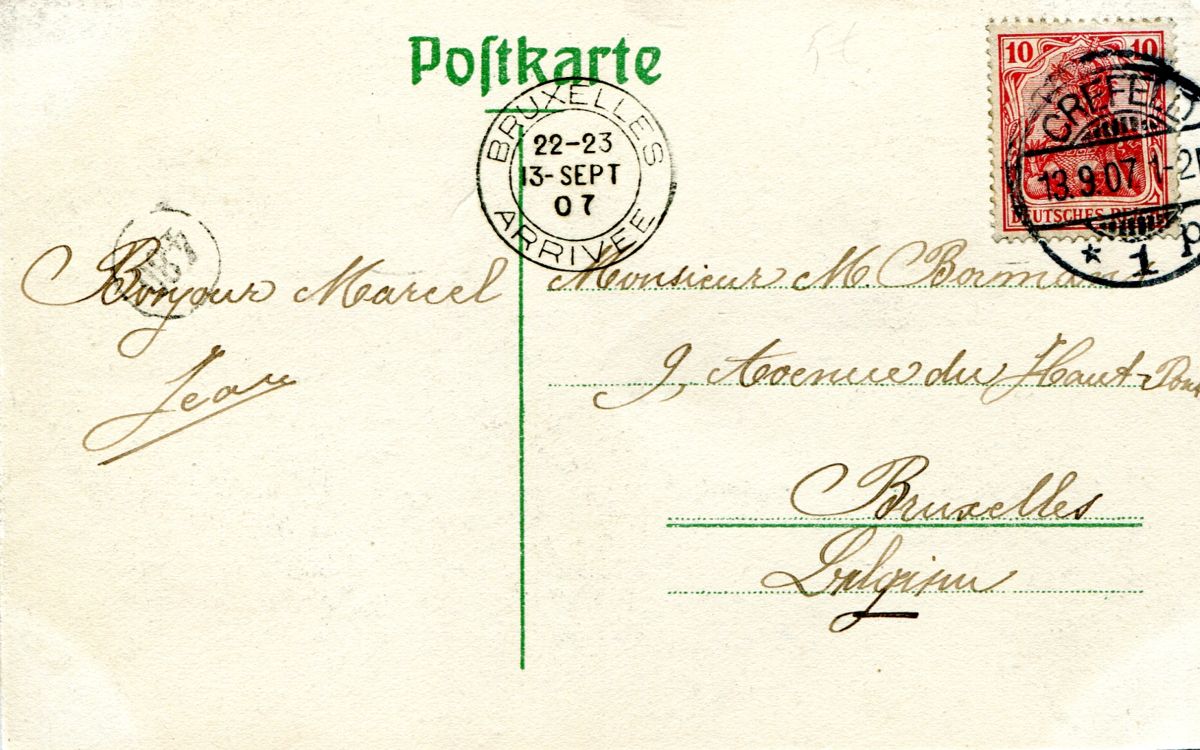 Postkarte
BRUXELLES
22-23
13-SEPT
07
ARRIVÉE
10 10
DEUTSCHES REICH
CREFELD
13.9.07 1-2N
* 1 P
Bonjour Marcel
Jean
Monsieur M. Bormans
9, Avenue du Haut-Pont
Bruxelles
Belgium